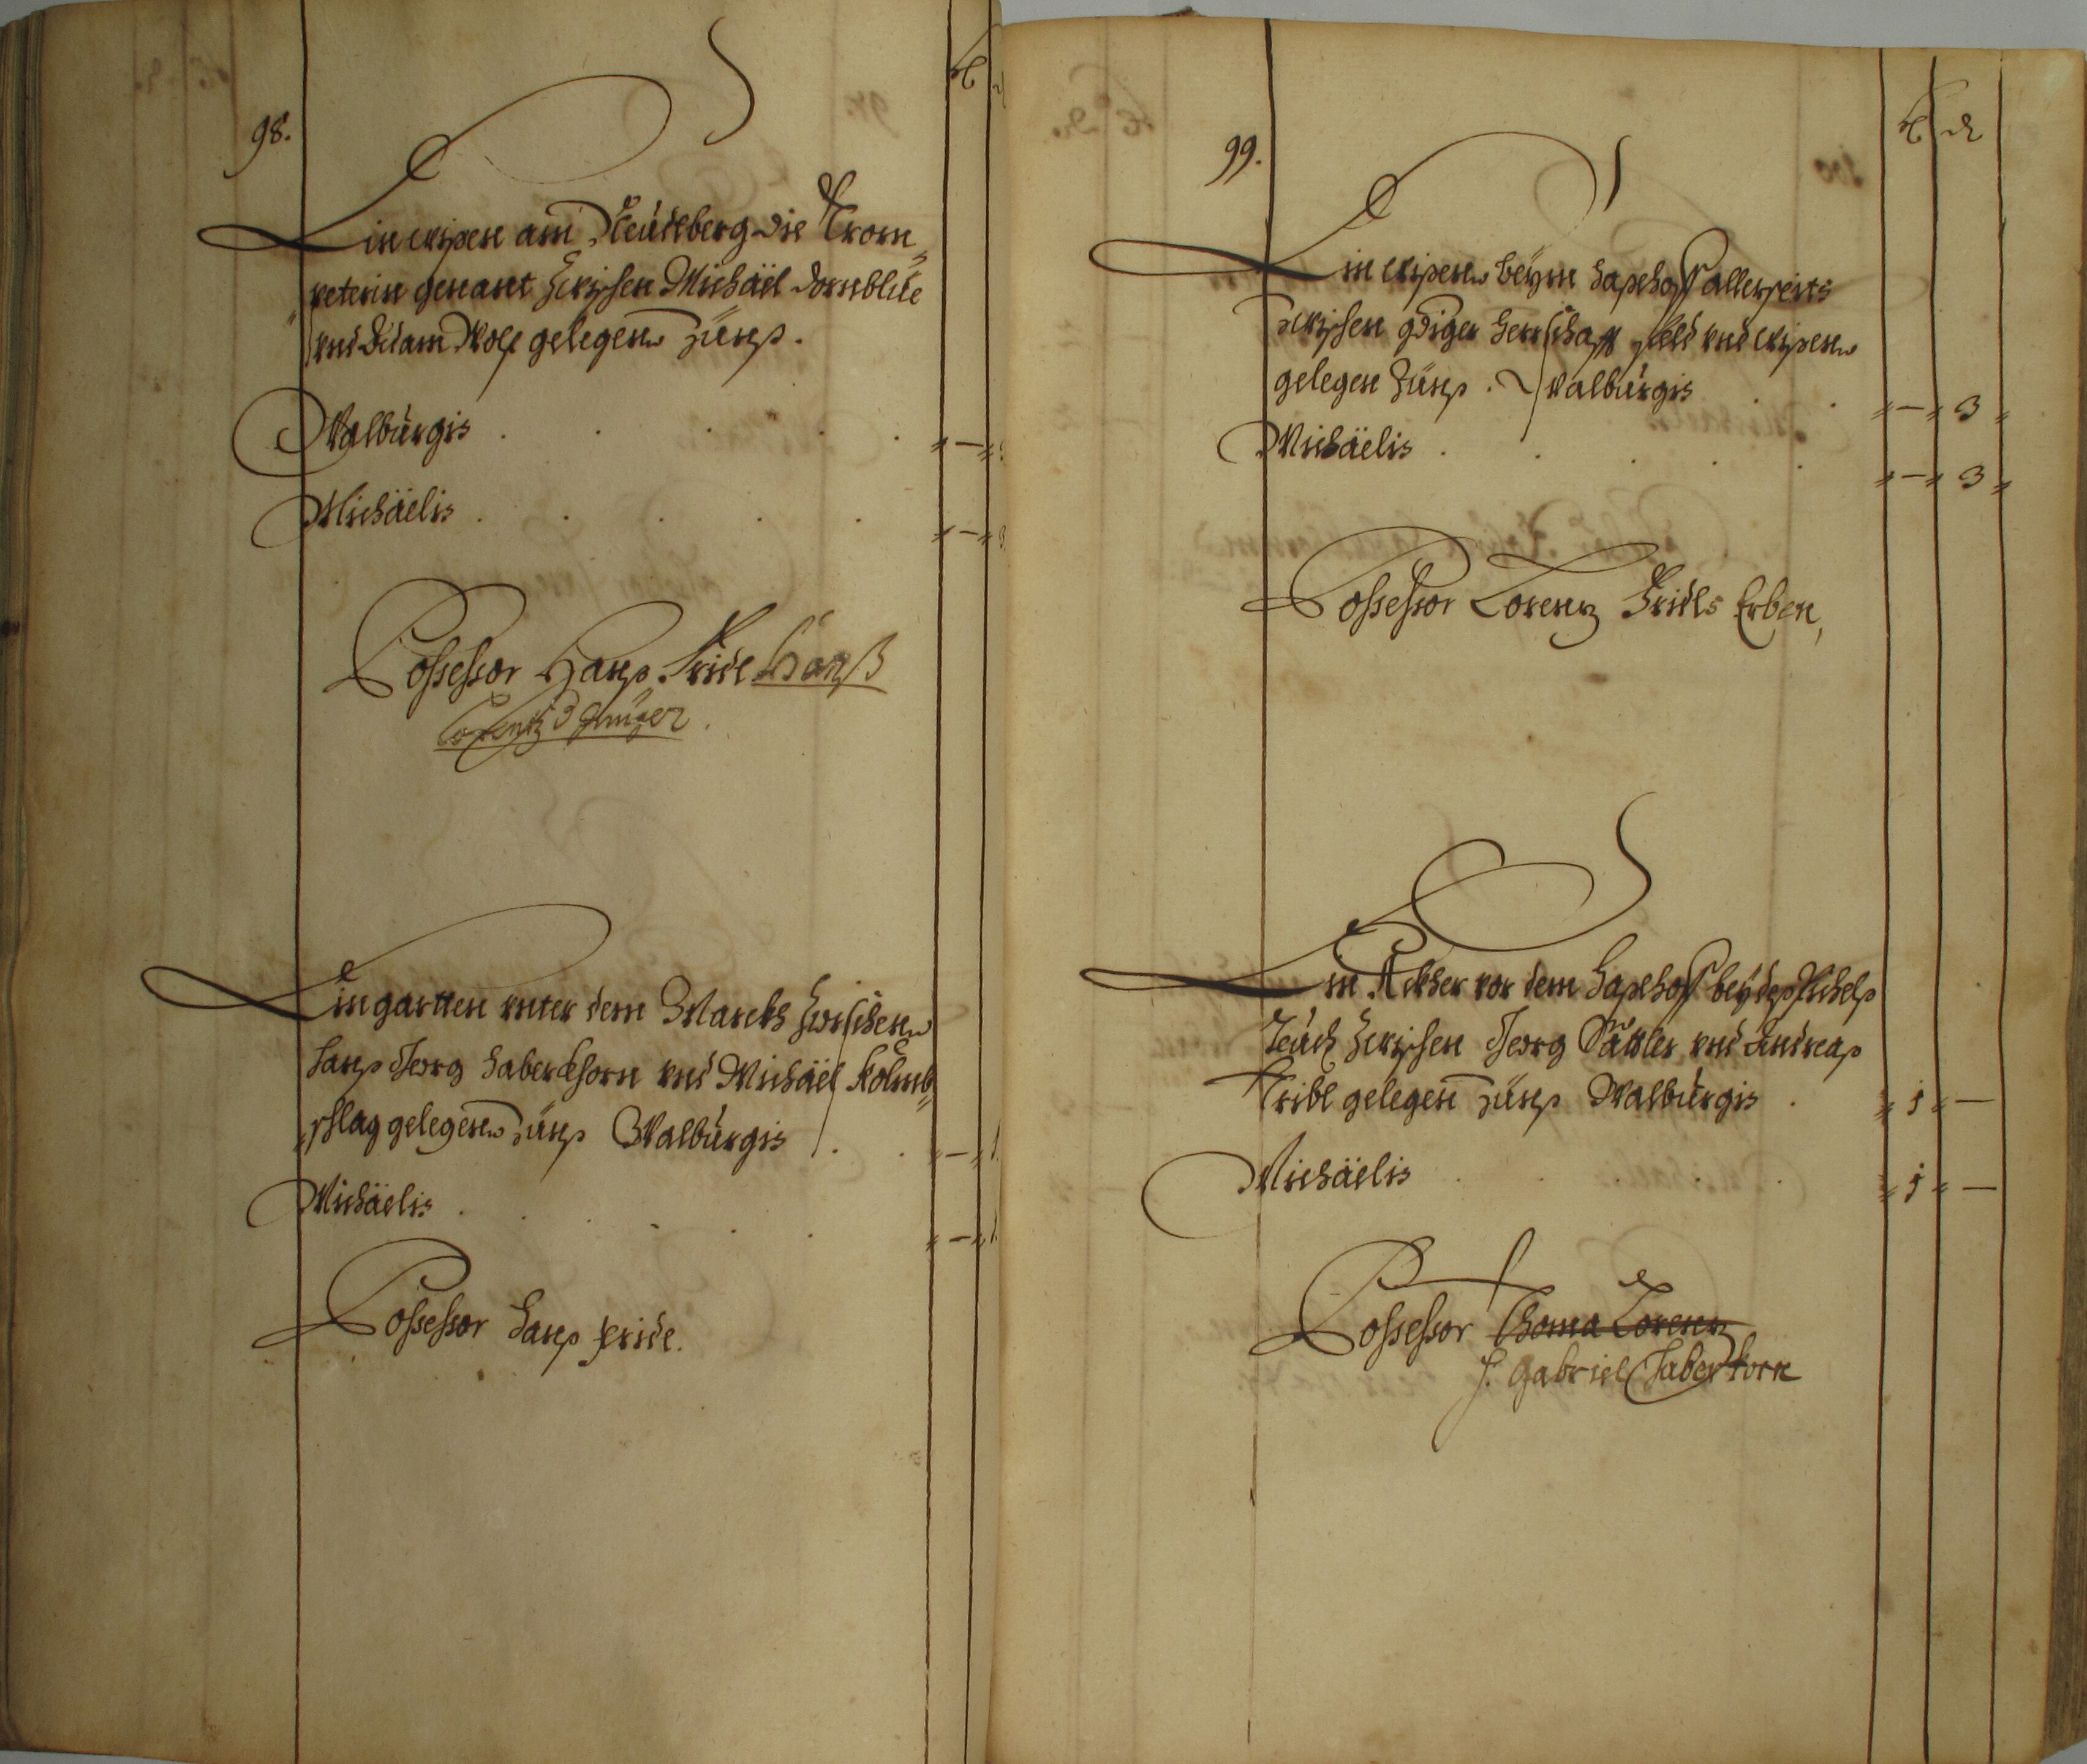 98.
Ein wisen am Reudlberg die Trom„
„peterin genant Zwischen Michäel Dornblüe
vnd Adam Wolf gelegen Zünß.
Walburgis
Michäelis
Possessor Hanß Fridl Hanß
Lorentz d Jünger.
Ein gartten vnter dem Marckh Zwischen
Hanß Georg Haberkhorn vnd Michäel Kolmb„
„schlag gelegen Zünß Walburgis
Michäelis
Possessor Hanß Fridl.
99.
Ein wisen beÿm Haßlhoff allerseits
Zwischen gdiger Herrschafft feld vnd wisen
gelegen Zünß. Walburgis - 3
Michäelis - 3
Possessor Lorentz Fridls Erben,
Ein Ackher vor dem Haßlhoff beÿ deß
Teuch Zwischen Georg Sattler vnd Andreaß
Tribl gelegen Zünß Walburgis 1 -
Michäelis 1 -
Possessor Thoma Lorentz
J. Gabriel Haberkorn